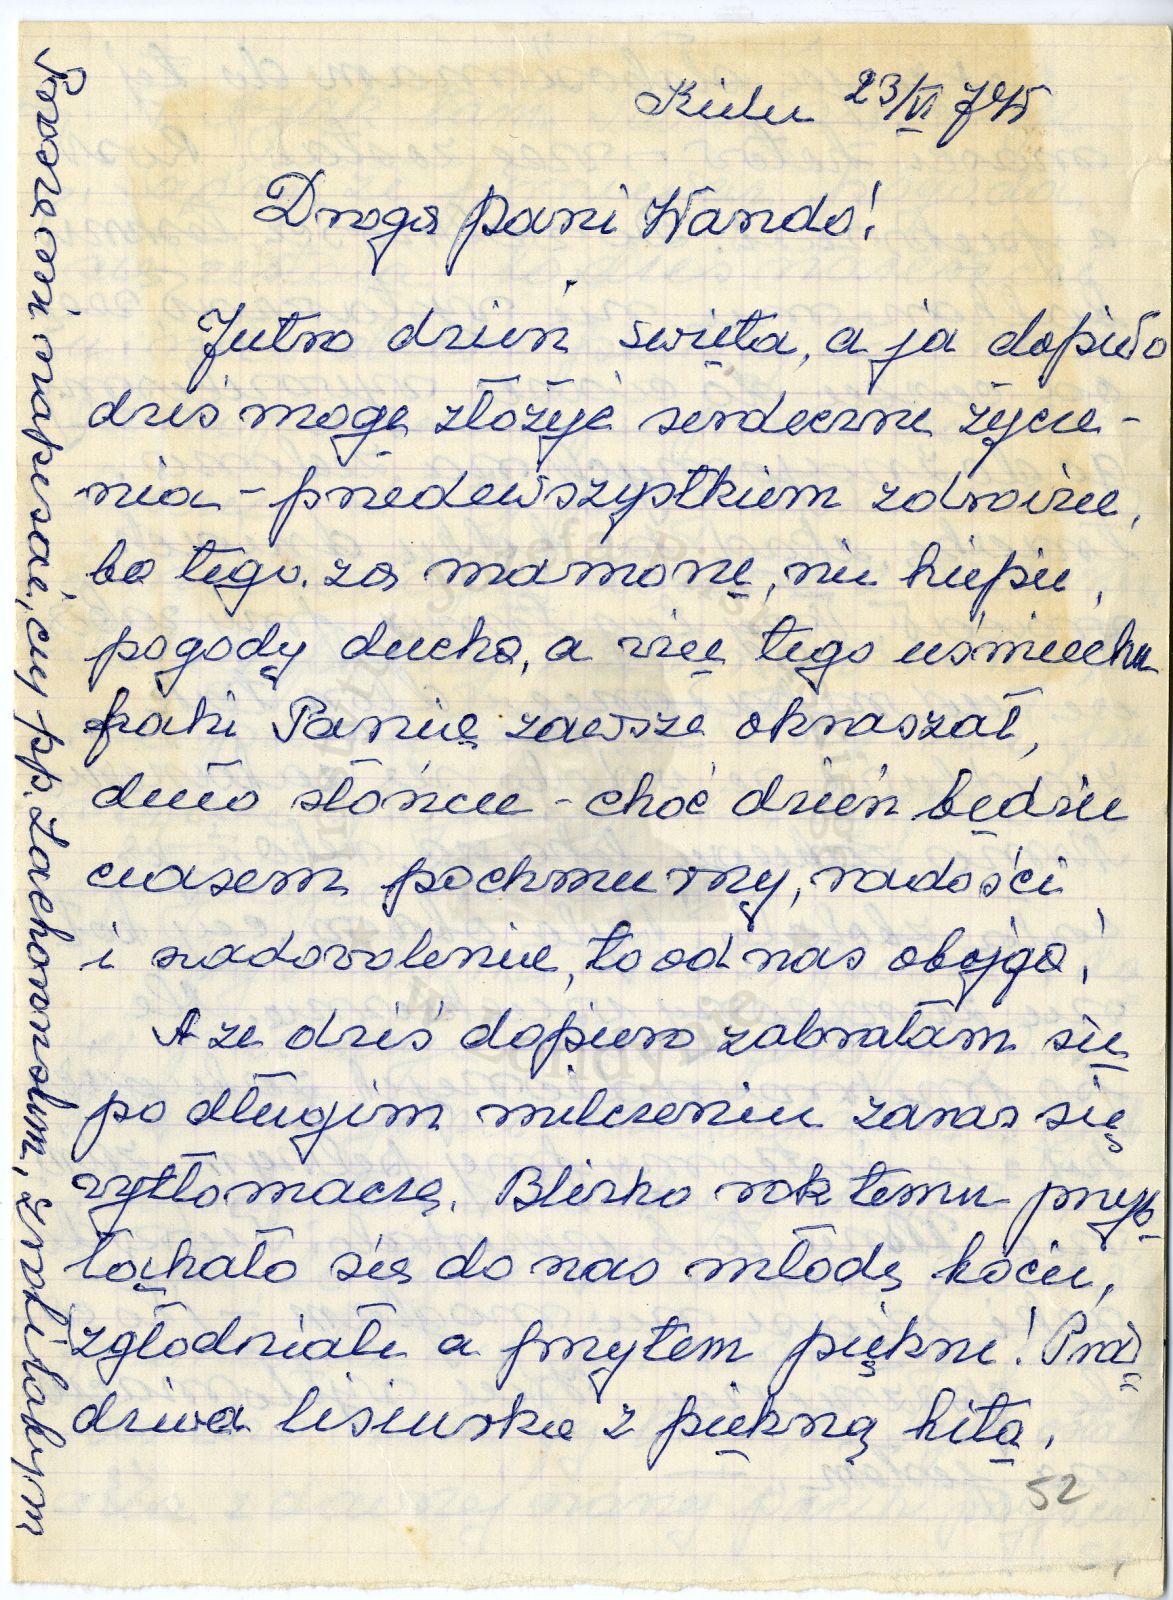 Kielce 23/VI 745
Droga pani Wando!
Jutro dzień święta, a ja dopiero
dziś mogę złożyć serdeczne życze-
nia - przedewszystkiem zdrowie,
bo tego za mamonę, nie kupie,
pogody ducha, a więc tego uśmiechu
jaki Panią zawsze okraszał,
dużo słońca - choć dzień będzie
czasem pochmurny, radości
i zadowolenie, to od nas obojga!
A że dziś dopiero zabrałam się
po długim milczeniu zaraz się
wytłomaczę. Blisko rok temu przyb-
łąkało się do nas młode kocię,
zgłodniałe a przytem piękne! Praw
dziwa lisiurka z piękną kitą.
52
Proszę mi napisać, czy pp. Lachowskim, z